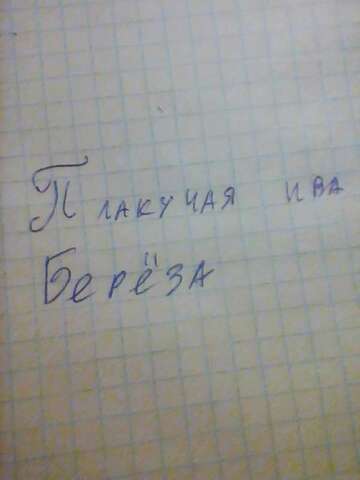 Плакучая ива
Берёза